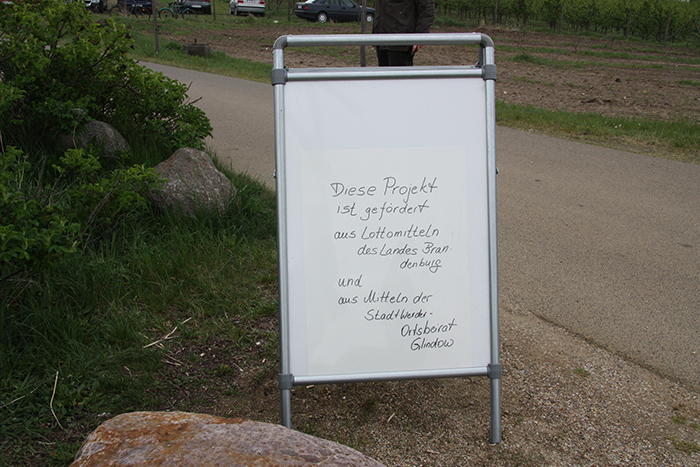 Diese Projekt
ist gefördert
aus Lottomitteln
des Landes Bran
denburg
und
aus Mitteln der
Stadt Werder-
Ortsbeirat
Glindow